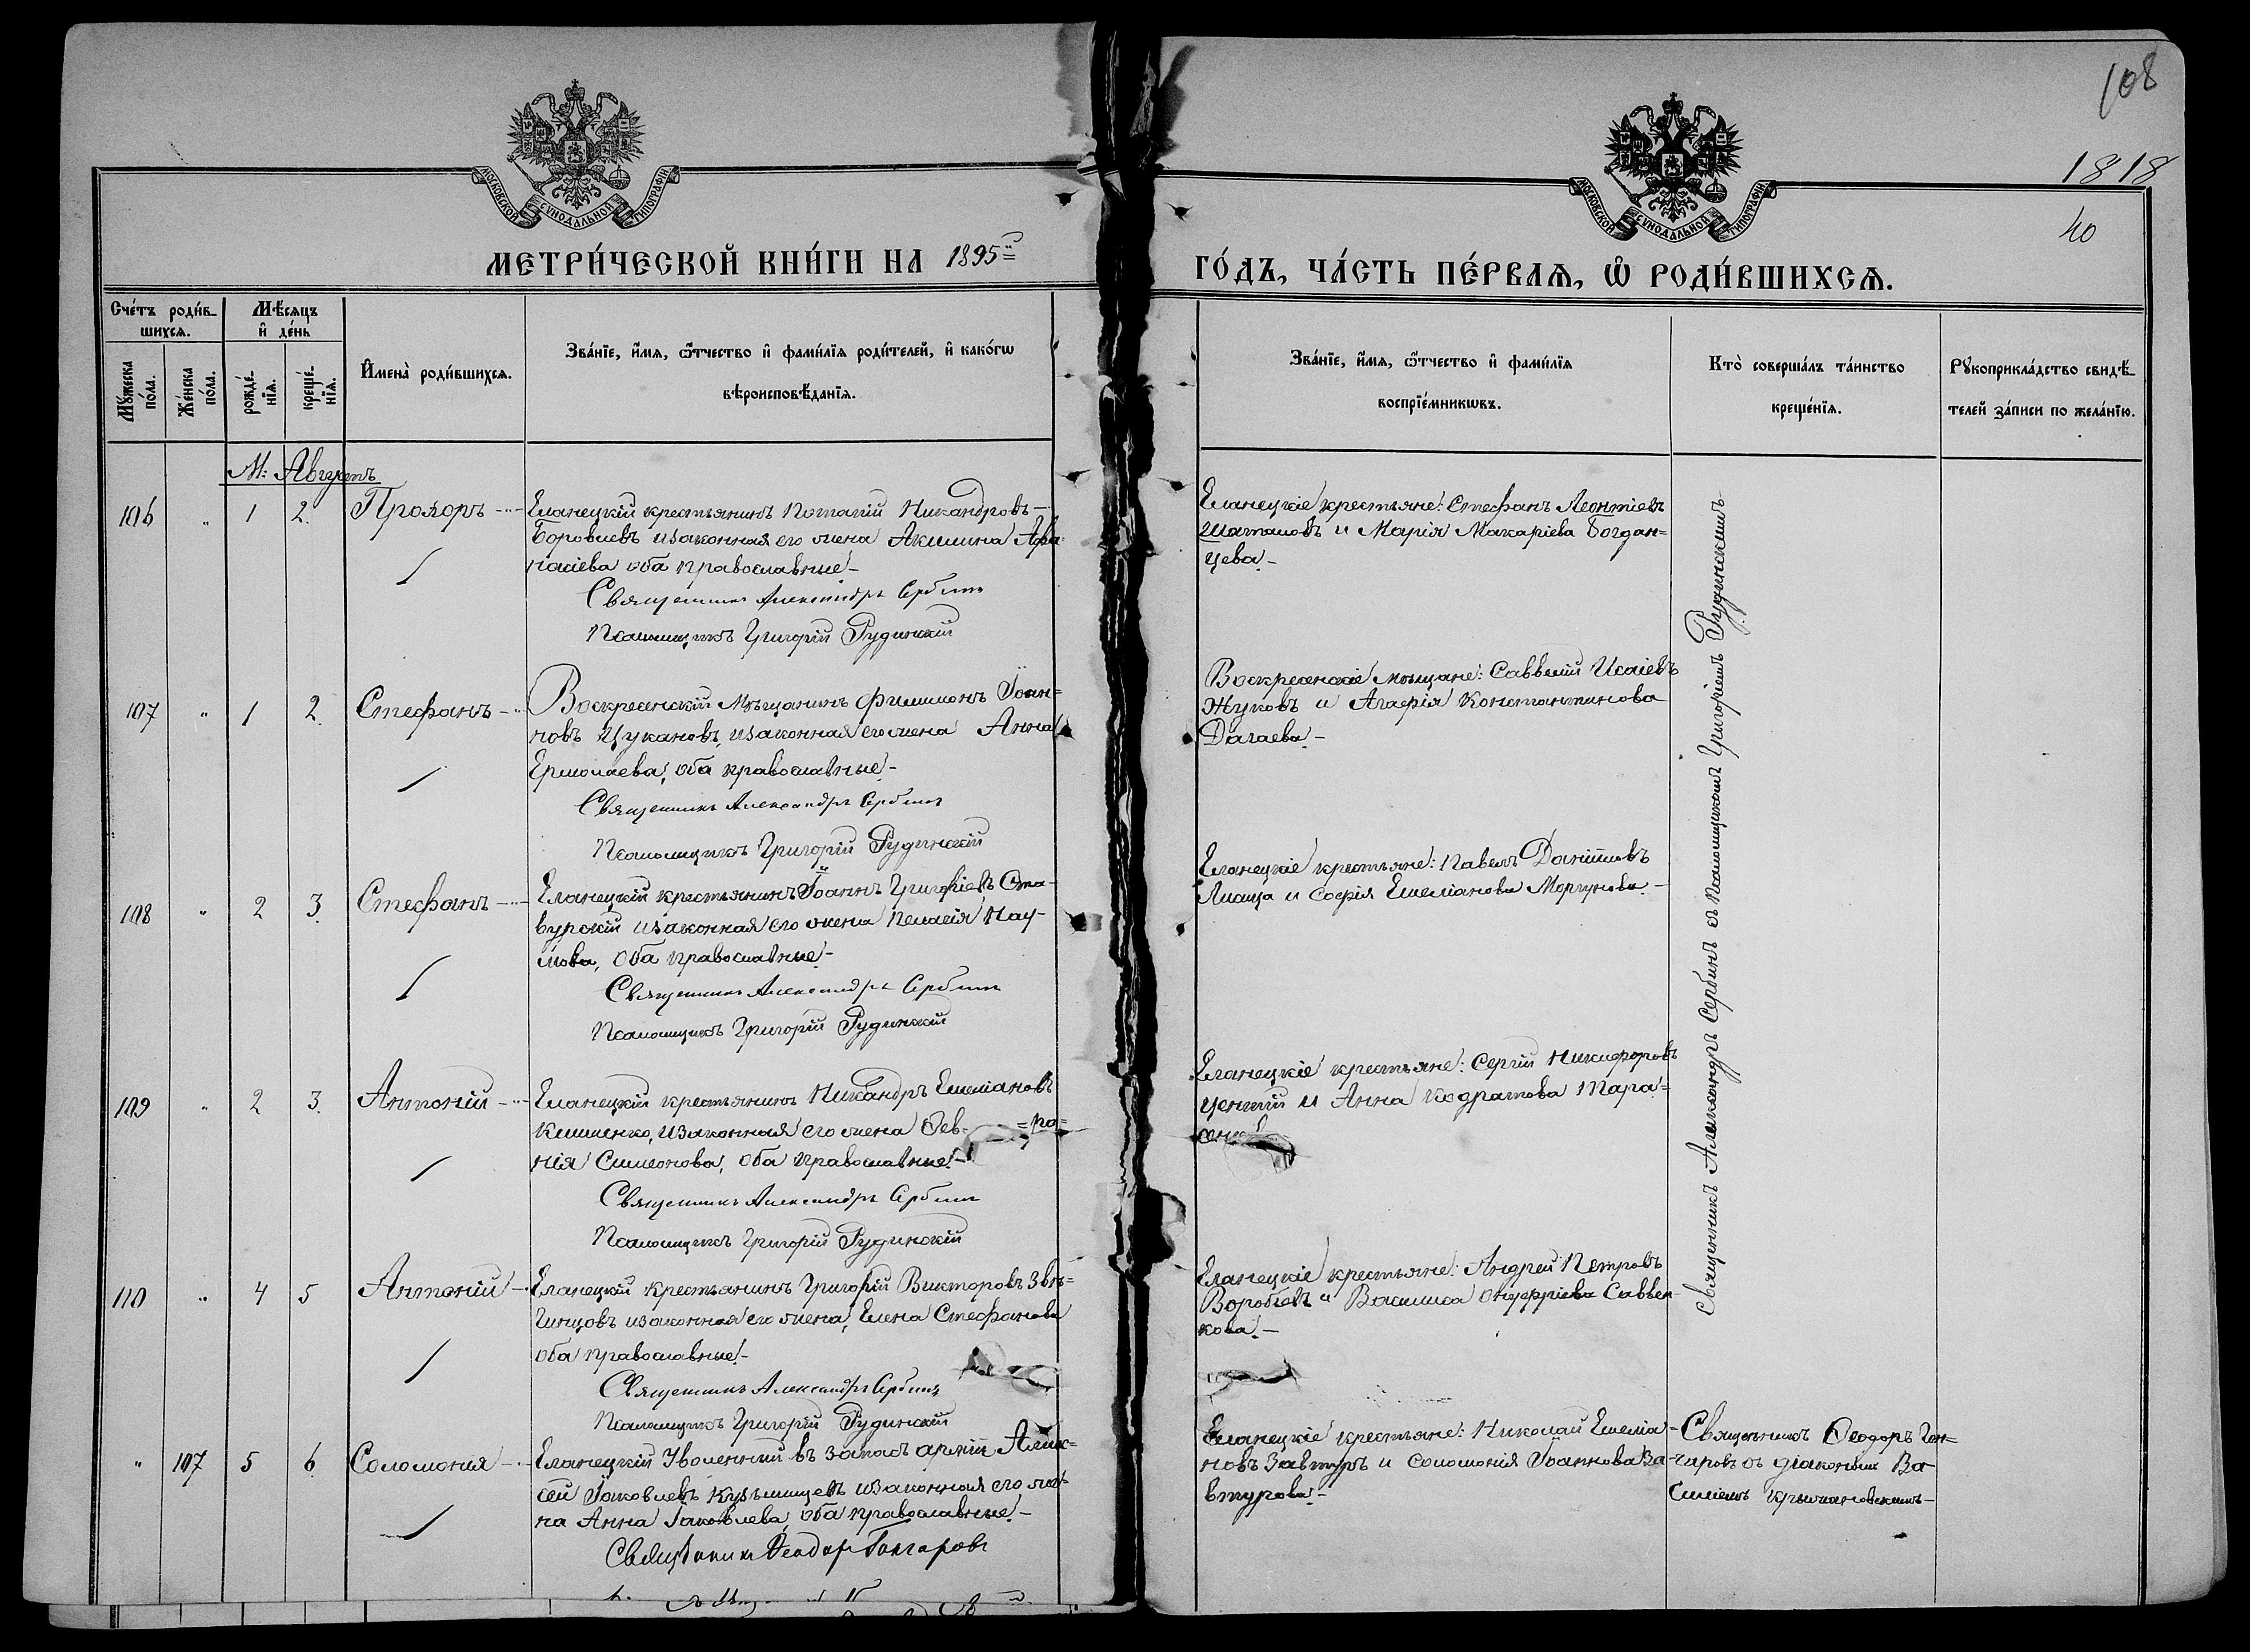 108
1818
40
МОСКОВСКОЙ СѴНОДАЛЬНОЙ ТИПОГРАФІИ
МОСКОВСКОЙ СѴНОДАЛЬНОЙ ТИПОГРАФІИ
МЕТРИ́ЧЕСКОЙ КНИ́ГИ НА 1895й
ГО́ДЪ, ЧА́СТЬ ПЕ́РВАѦ, Ѡ҆ РОДИ́ВШИХСѦ.
Сче́тъ роди́в-
шихсѧ.
Мѣ́сѧцъ
и҆ де́нь
Мꙋ́жеска по́ла.
Же́нска по́ла.
рожде́-
нїѧ.
креще́-
нїѧ.
И҆мена̀ роди́вшихсѧ.
Зва́нїе, и҆́мѧ, ѻ҆́тчество и҆ фами́лїѧ роди́телей, и҆ како́гѡ
вѣроисповѣ́данїѧ.
Зва́нїе, и҆́мѧ, ѻ҆́тчество и҆ фами́лїѧ
воспрїе́мникѡвъ.
Кто̀ соверша́лъ та́инство
креще́нїѧ.
Рꙋкоприкла́дство свидѣ́-
телей за́писи по жела́нїю.
М: Августъ
106 " 1 2. Прохоръ
Еланецкій крестьянинъ Потапій Никандровъ
Боровлевъ и законная его жена Акилина Афа-
насіева оба православные
Священникъ Александръ Сербинъ
Псаломщикъ Григорій Рудинскій
Еланецкіе крестьяне: Стефанъ Леонтіевъ
Шаталовъ и Марія Макаріева Богдан=
цева.
107 " 1 2. Стефанъ
Воскресенскій мѣщанинъ Филимонъ Іоан=
новъ Цукановъ, и законная его жена Анна
Ермолаева, оба православные
Священникъ Александръ Сербинъ
Псаломщикъ Григорій Рудинскій
Воскресенскіе мѣщане: Савватій Исаіевъ
Жуковъ и Агафія Константинова
Дагаева.
108 " 2 3. Стефанъ
Еланецкій крестьянинъ Іоаннъ Григоріевъ Ста-
вурскій и законная его жена Пелагія Нау-
мова, оба православные
Священникъ Александръ Сербинъ
Псаломщикъ Григорій Рудинскій
Еланецкіе крестьяне: Павелъ Даніиловъ
Лисица и Софія Емеліанова Моргунова
109 " 2 3. Антоній
Еланецкій крестьянинъ Никандръ Емеліановъ
Клименко, и законная его жена Оев- =ро=
нія Симеонова, оба православные
Священникъ Александръ Сербинъ
Псаломщикъ Григорій Рудинскій
Еланецкіе крестьяне: Сергій Никифоровъ
и Анна Кодратова Тара=
сенк
110 " 4 5 Антоній
Еланецкій крестьянинъ Григорій Викторовъ Звя=
гинцовъ и законная его жена, Елена Стефанова
оба православные
Священникъ Александръ Сербинъ
Псаломщикъ Григорій Рудинскій
Еланецкіе крестьяне: Андрей Петровъ
Воробьевъ и Василиса Онуфріева Саввен-
кова.
Священникъ Александръ Сербинъ съ Псаломщикомъ Григоріемъ Рудинскимъ
" 107 5 6 Соломонія
Еланецкій Уволенный въ запасъ арміи Алек=
сей Іаковлевъ Кузьмицевъ и законная его же-
на Анна Іаковлева, оба православные
Священникъ Ѳеодоръ Гончаровъ
Еланецкіе крестьяне: Николай Емеліа-
новъ Завтуръ и Соломонія Іоаннова За-
втурова
Священникъ Ѳеодоръ Гон=
чаровъ съ діакономъ Ва-
силіемъ Крыжановскимъ